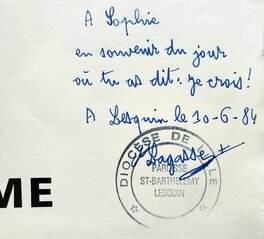 A Sophie
en souvenir du jour
où tu as dit: je crois!
A Lesquin le 10-6-84
DIOCÈSE DE LILLE
PAROISSE
ST-BARTHELEMY
LESQUIN
ME